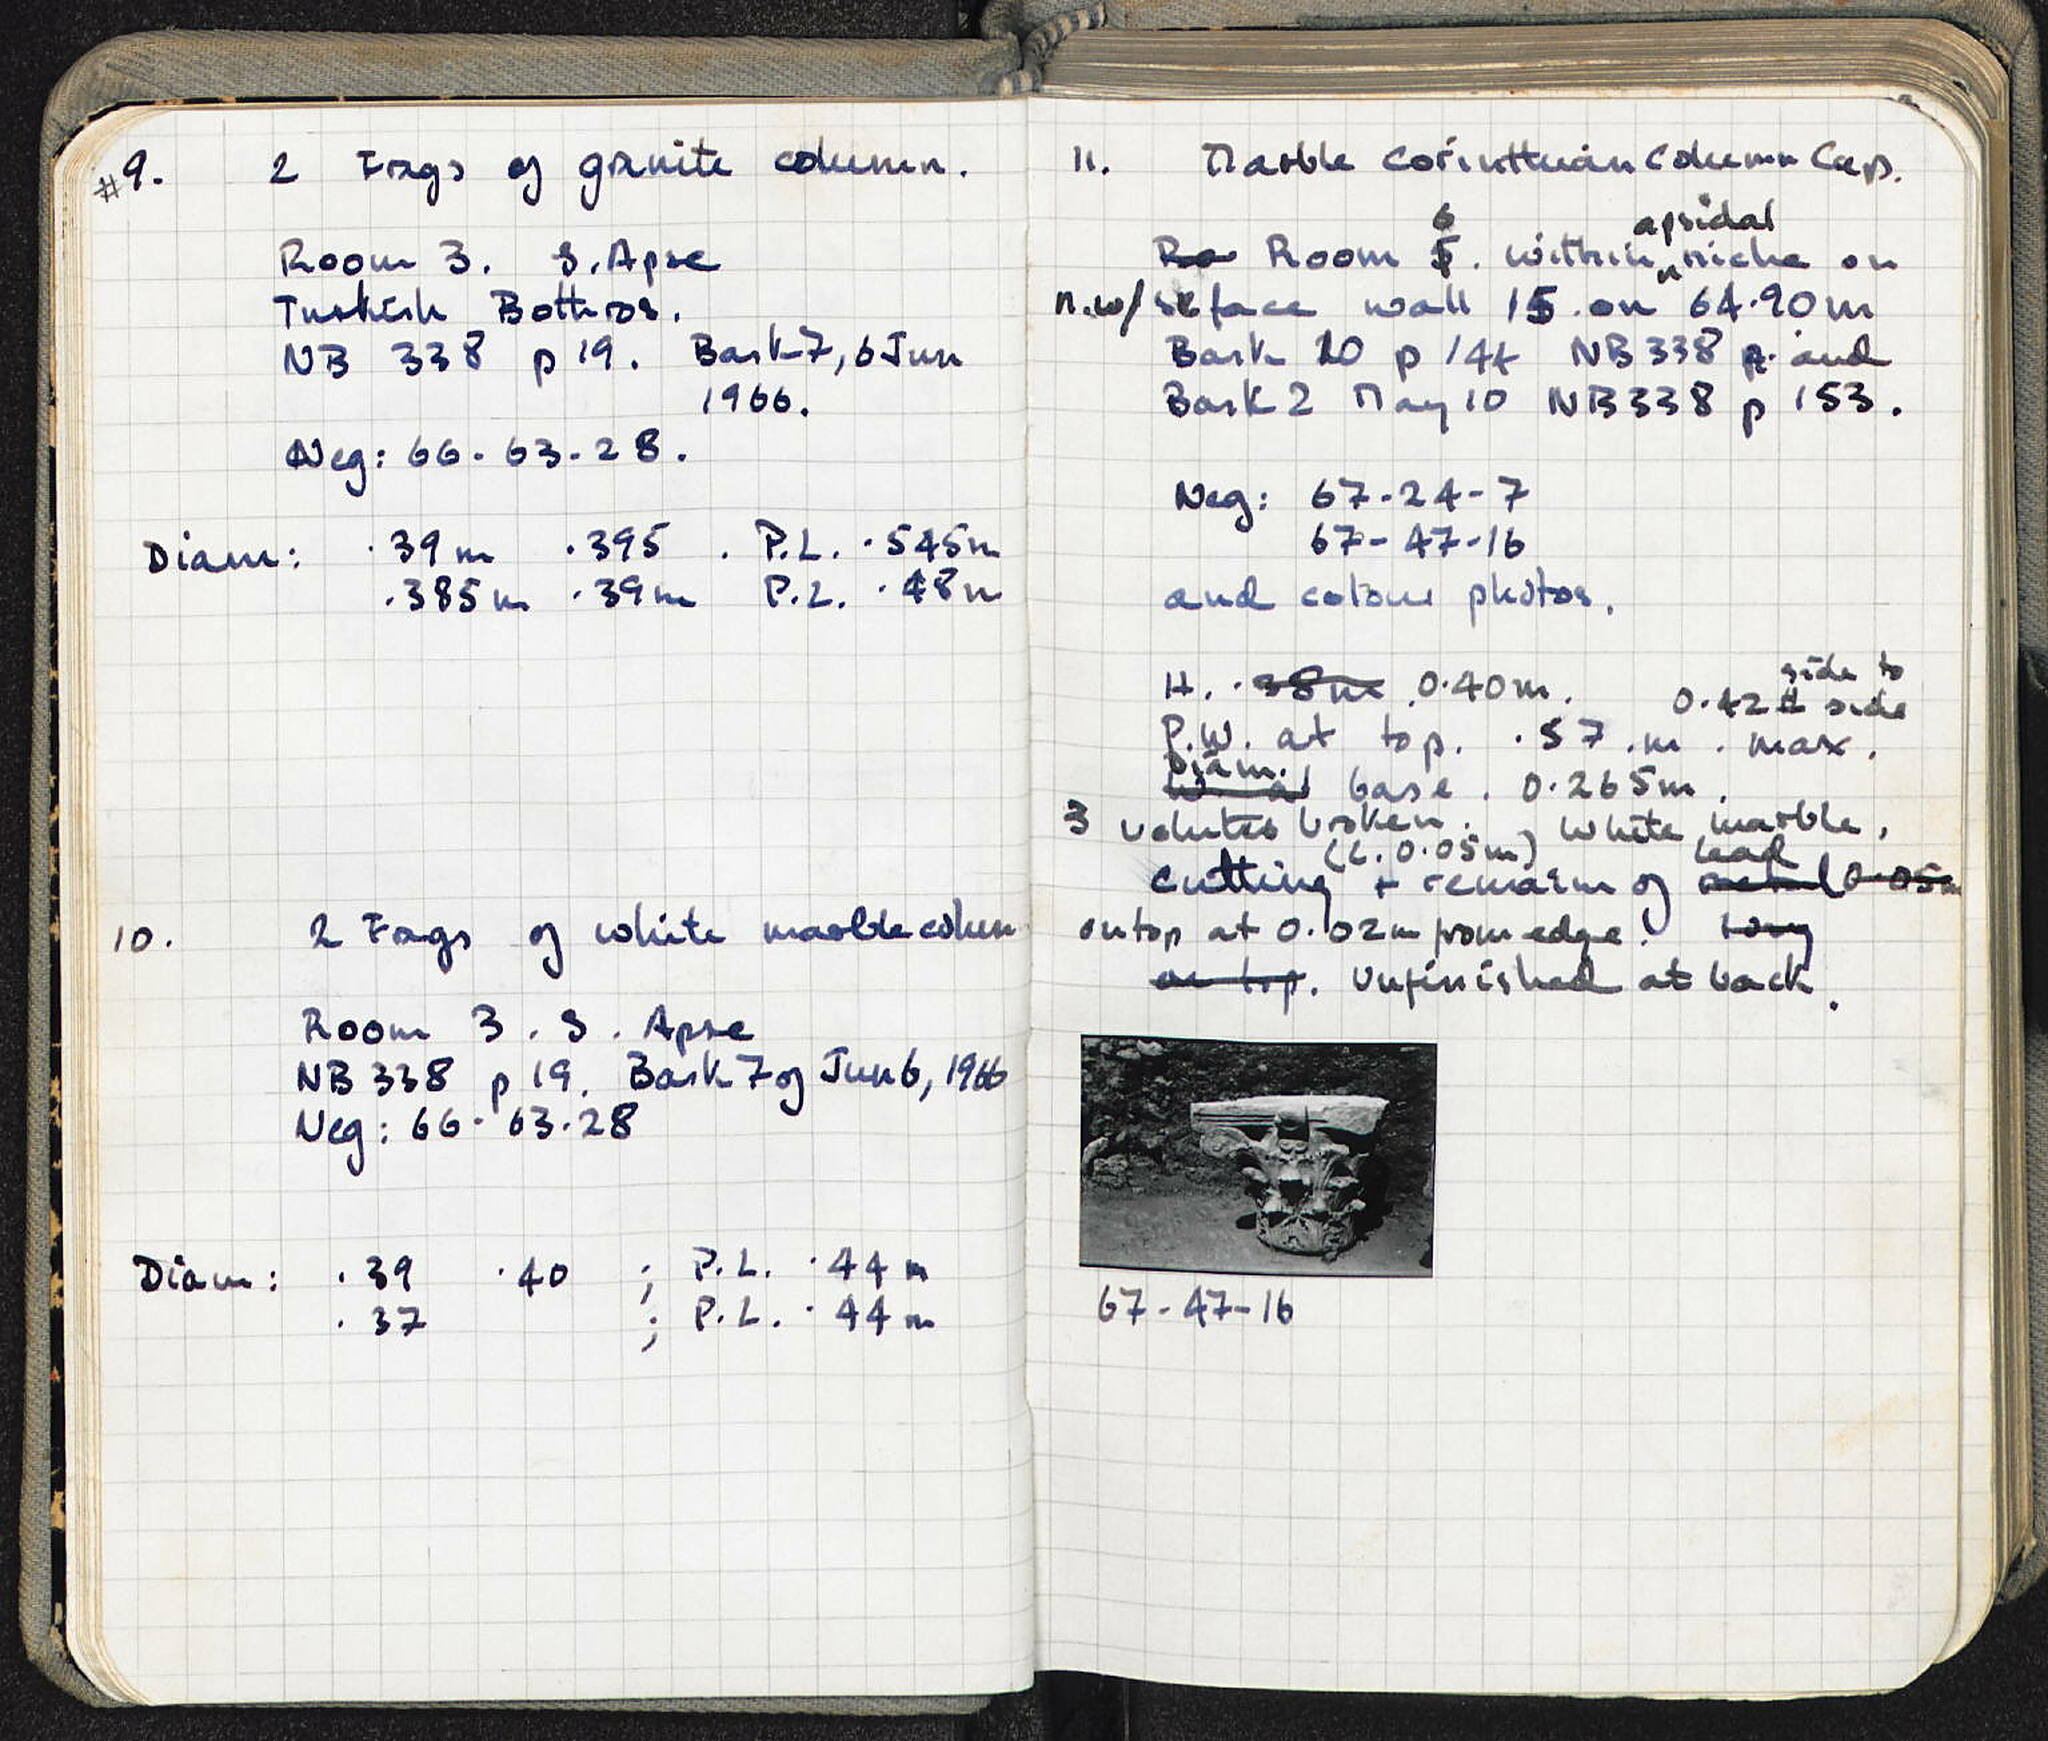 #9. 2 Frags of granite column.
Room 3. S. Apse
Turkish Bothros.
NB 338 p 19. Bask 7, 6 Jun
1966.
Neg: 66-63-28.
Diam: .39m .395 . P.L. .545m
.385m .39m P.L. .48m
10. 2 Frags of white marble colum
Room 3. S. Apse
NB 338 p 19. Bask 7 of Jun 6, 1966
Neg: 66-63-28
Diam: .39 .40 ; P.L. .44m
.37 ; P.L. .44m
11. Marble Corinthian Column Cap.
6 apsidal
Ro Room 5. within niche on
n.w/ face wall 15 on 64.90m
Bask 20 p 144 NB 338 p. and
Bask 2 May 10 NB 338 p 153.
Neg: 67-24-7
67-47-16
and colour photos.
side to
H. .38m 0.40m. 0.42 side
P.W. at top. .57 m. max.
Diam.
W at base. 0.265m.
3 volutes broken. White marble.
(L. 0.05m) lead
cutting + remains of metal 0.05m
on top at 0.02m from edge. long
on top. Unfinished at back.
67-47-16